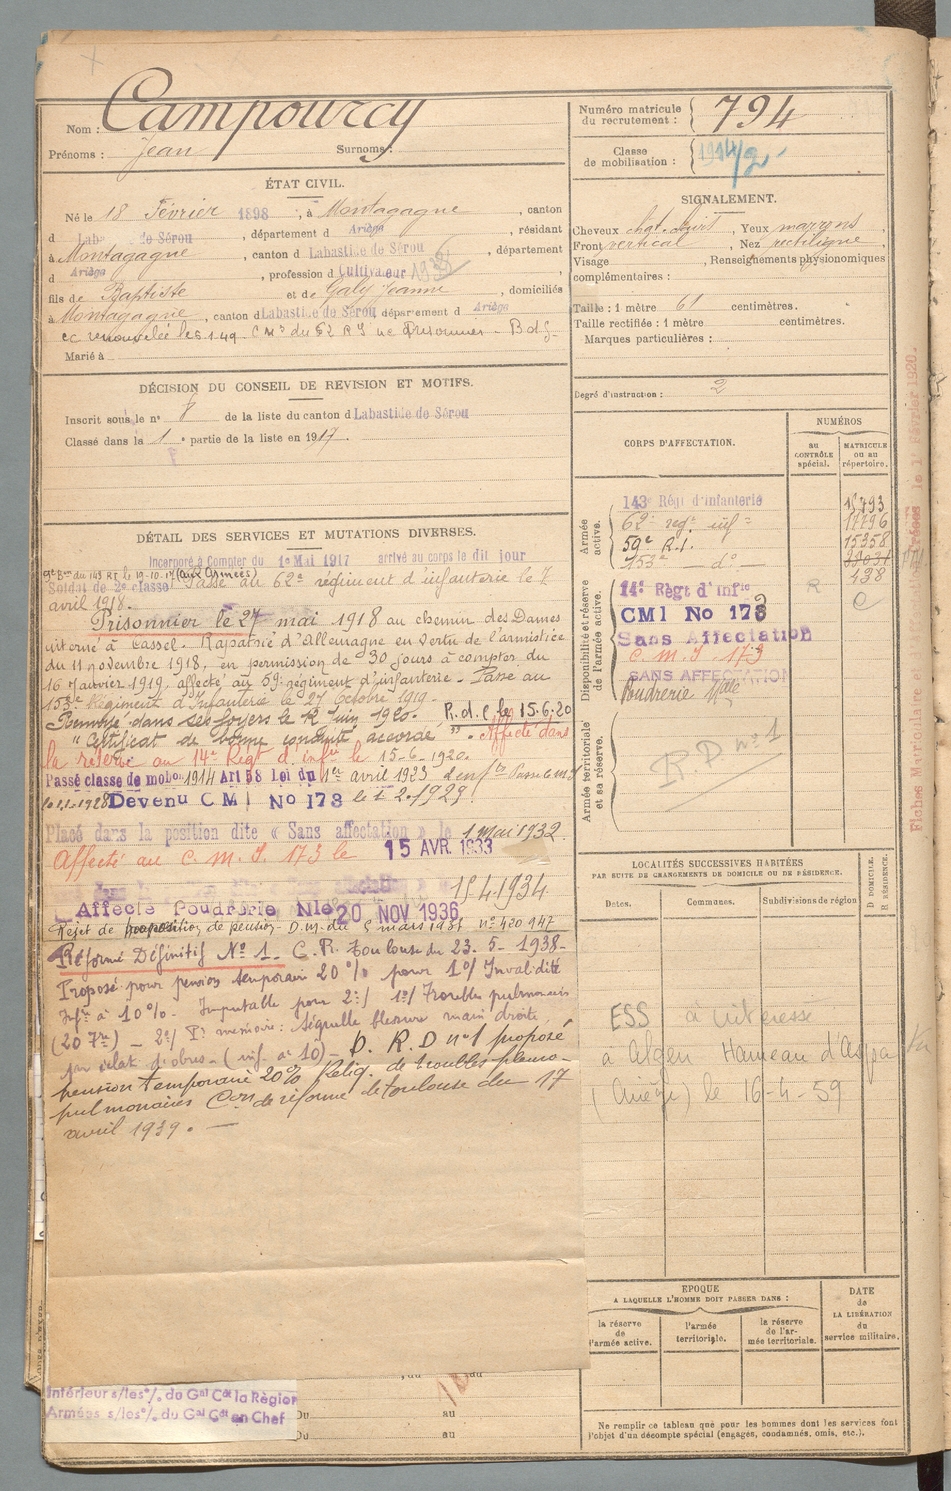 Nom : Campourcy
Prénoms : Jean Surnoms :
Numéro matricule du recrutement : 794
Classe de mobilisation : 1914/2
ÉTAT CIVIL.
Né le 18 Février 1898, à Montagagne, canton
d Labastide de Sérou, département d Ariège, résidant
à Montagagne, canton d Labastide de Sérou, département
d Ariège, profession d Cultivateur
fils de Baptiste et de Galy Jeanne, domiciliés
à Montagagne, canton d Labastide de Sérou département d Ariège
cc renouvelée le 5.1.49. du 62 RI Prisonnier
Marié à
SIGNALEMENT.
Cheveux chat. Yeux marrons
Front vertical, Nez rectiligne
Visage, Renseignements physionomiques
complémentaires :
Taille : 1 mètre 61 centimètres.
Taille rectifiée : 1 mètre centimètres.
Marques particulières :
Degré d'instruction : 2
DÉCISION DU CONSEIL DE REVISION ET MOTIFS.
Inscrit sous le n° 8 de la liste du canton d Labastide de Sérou
Classé dans la 1e partie de la liste en 1917.
CORPS D'AFFECTATION.
NUMÉROS
au CONTRÔLE spécial.
MATRICULE ou au répertoire.
Armée active.
143e Régt d'infanterie
62e reg. inf
59e R.I. 15358
153e do
138
Disponibilité et réserve de l'armée active.
14e Régt d'Infie R
CMI No 173
Sans Affectation
C.M.I. 173
SANS AFFECTATION
Poudrerie Nale
Armée territoriale et sa réserve.
R.D n° 1
DÉTAIL DES SERVICES ET MUTATIONS DIVERSES.
Incorporé à Compter du 1e Mai 1917 arrivé au corps le dit jour
Soldat de 2e classe (aux Armées) Passé au 62e régiment d'infanterie le 7
avril 1918.
Prisonnier le 27 mai 1918 au chemin des Dames
interné à Cassel. Rapatrié d'Allemagne en vertu de l'armistice
du 11 novembre 1918, en permission de 30 jours à compter du
16 Janvier 1919, affecté au 59e régiment d'infanterie - Passé au
153e Régiment d'Infanterie le 27 Octobre 1919.
Renvoyé dans ses foyers le 12 juin 1920. R.d.C. le 15.6.20
"Certificat de bonne conduite accordé". Affecté dans
la réserve au 14e Régt d'Infie le 15-6-1920.
Passé classe de mobon 1914 Art 58 Loi du 1er avril 1923
Devenu C M I No 173 le 1 2.1929.
Placé dans la position dite « Sans affectation » le 1 Mai 1932.
Affecté au C.M.I. 173 le 15 AVR. 1933
15.4.1934
Affecté Poudrerie Nle 20 NOV 1936
Rejet de proposition de pension - D.M. du 5 mars 1937 n° 420 947
Réformé Définitif N° 1. C.R. Toulouse du 23-5-1938-
Proposé pour pension temporaire 20% pour 1°/ Invalidité
Infre à 10%. Imputable pour 2°/ 1°/ Troubles pulmonaires
mémoire: Séquelle blessure main droite
par éclat d'obus - (inf. à 10) - D. R.D n° 1 proposé
pension temporaire 20% Reliq. de troubles pleuro-
pulmonaires Con de réforme de Toulouse du 17
avril 1939. -
Fiches Matriculaire le 1er Février 1920.
LOCALITÉS SUCCESSIVES HABITÉES
PAR SUITE DE CHANGEMENTS DE DOMICILE OU DE RÉSIDENCE.
Dates. Communes. Subdivisions de région
D DOMICILE.
R RÉSIDENCE.
ESS à intéressé
à Hameau d'
(Ariège) le 16-4-59
EPOQUE
A LAQUELLE L'HOMME DOIT PASSER DANS :
la réserve de l'armée active.
l'armée territoriale.
la réserve de l'armée territoriale.
DATE de LA LIBÉRATION du service militaire.
Intérieur s/les °/. du Gal Cdt la Région
Armées s/les °/. du Gal Cdt en Chef
Du au
Du au
Ne remplir ce tableau que pour les hommes dont les services font
l'objet d'un décompte spécial (engagés, condamnés, omis, etc.).